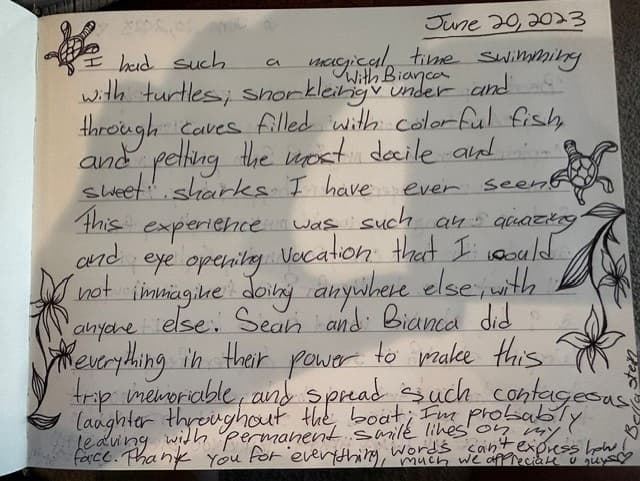 June 20, 2023
I had such a magical time swimming
with Bianca
with turtles, snorkleing under and
through caves filled with colorful fish,
and petting the most docile and
sweet sharks I have ever seen.
This experience was such an amazing
and eye opening vacation that I would
not immagine doing anywhere else, with
anyone else. Sean and Bianca did
everything in their power to make this
trip memoriable, and spread such contageous
laughter throughout the boat; I'm probably
leaving with permanent smile lines on my
face. Thank you for everything, words can't express how
much we appreciate u guys